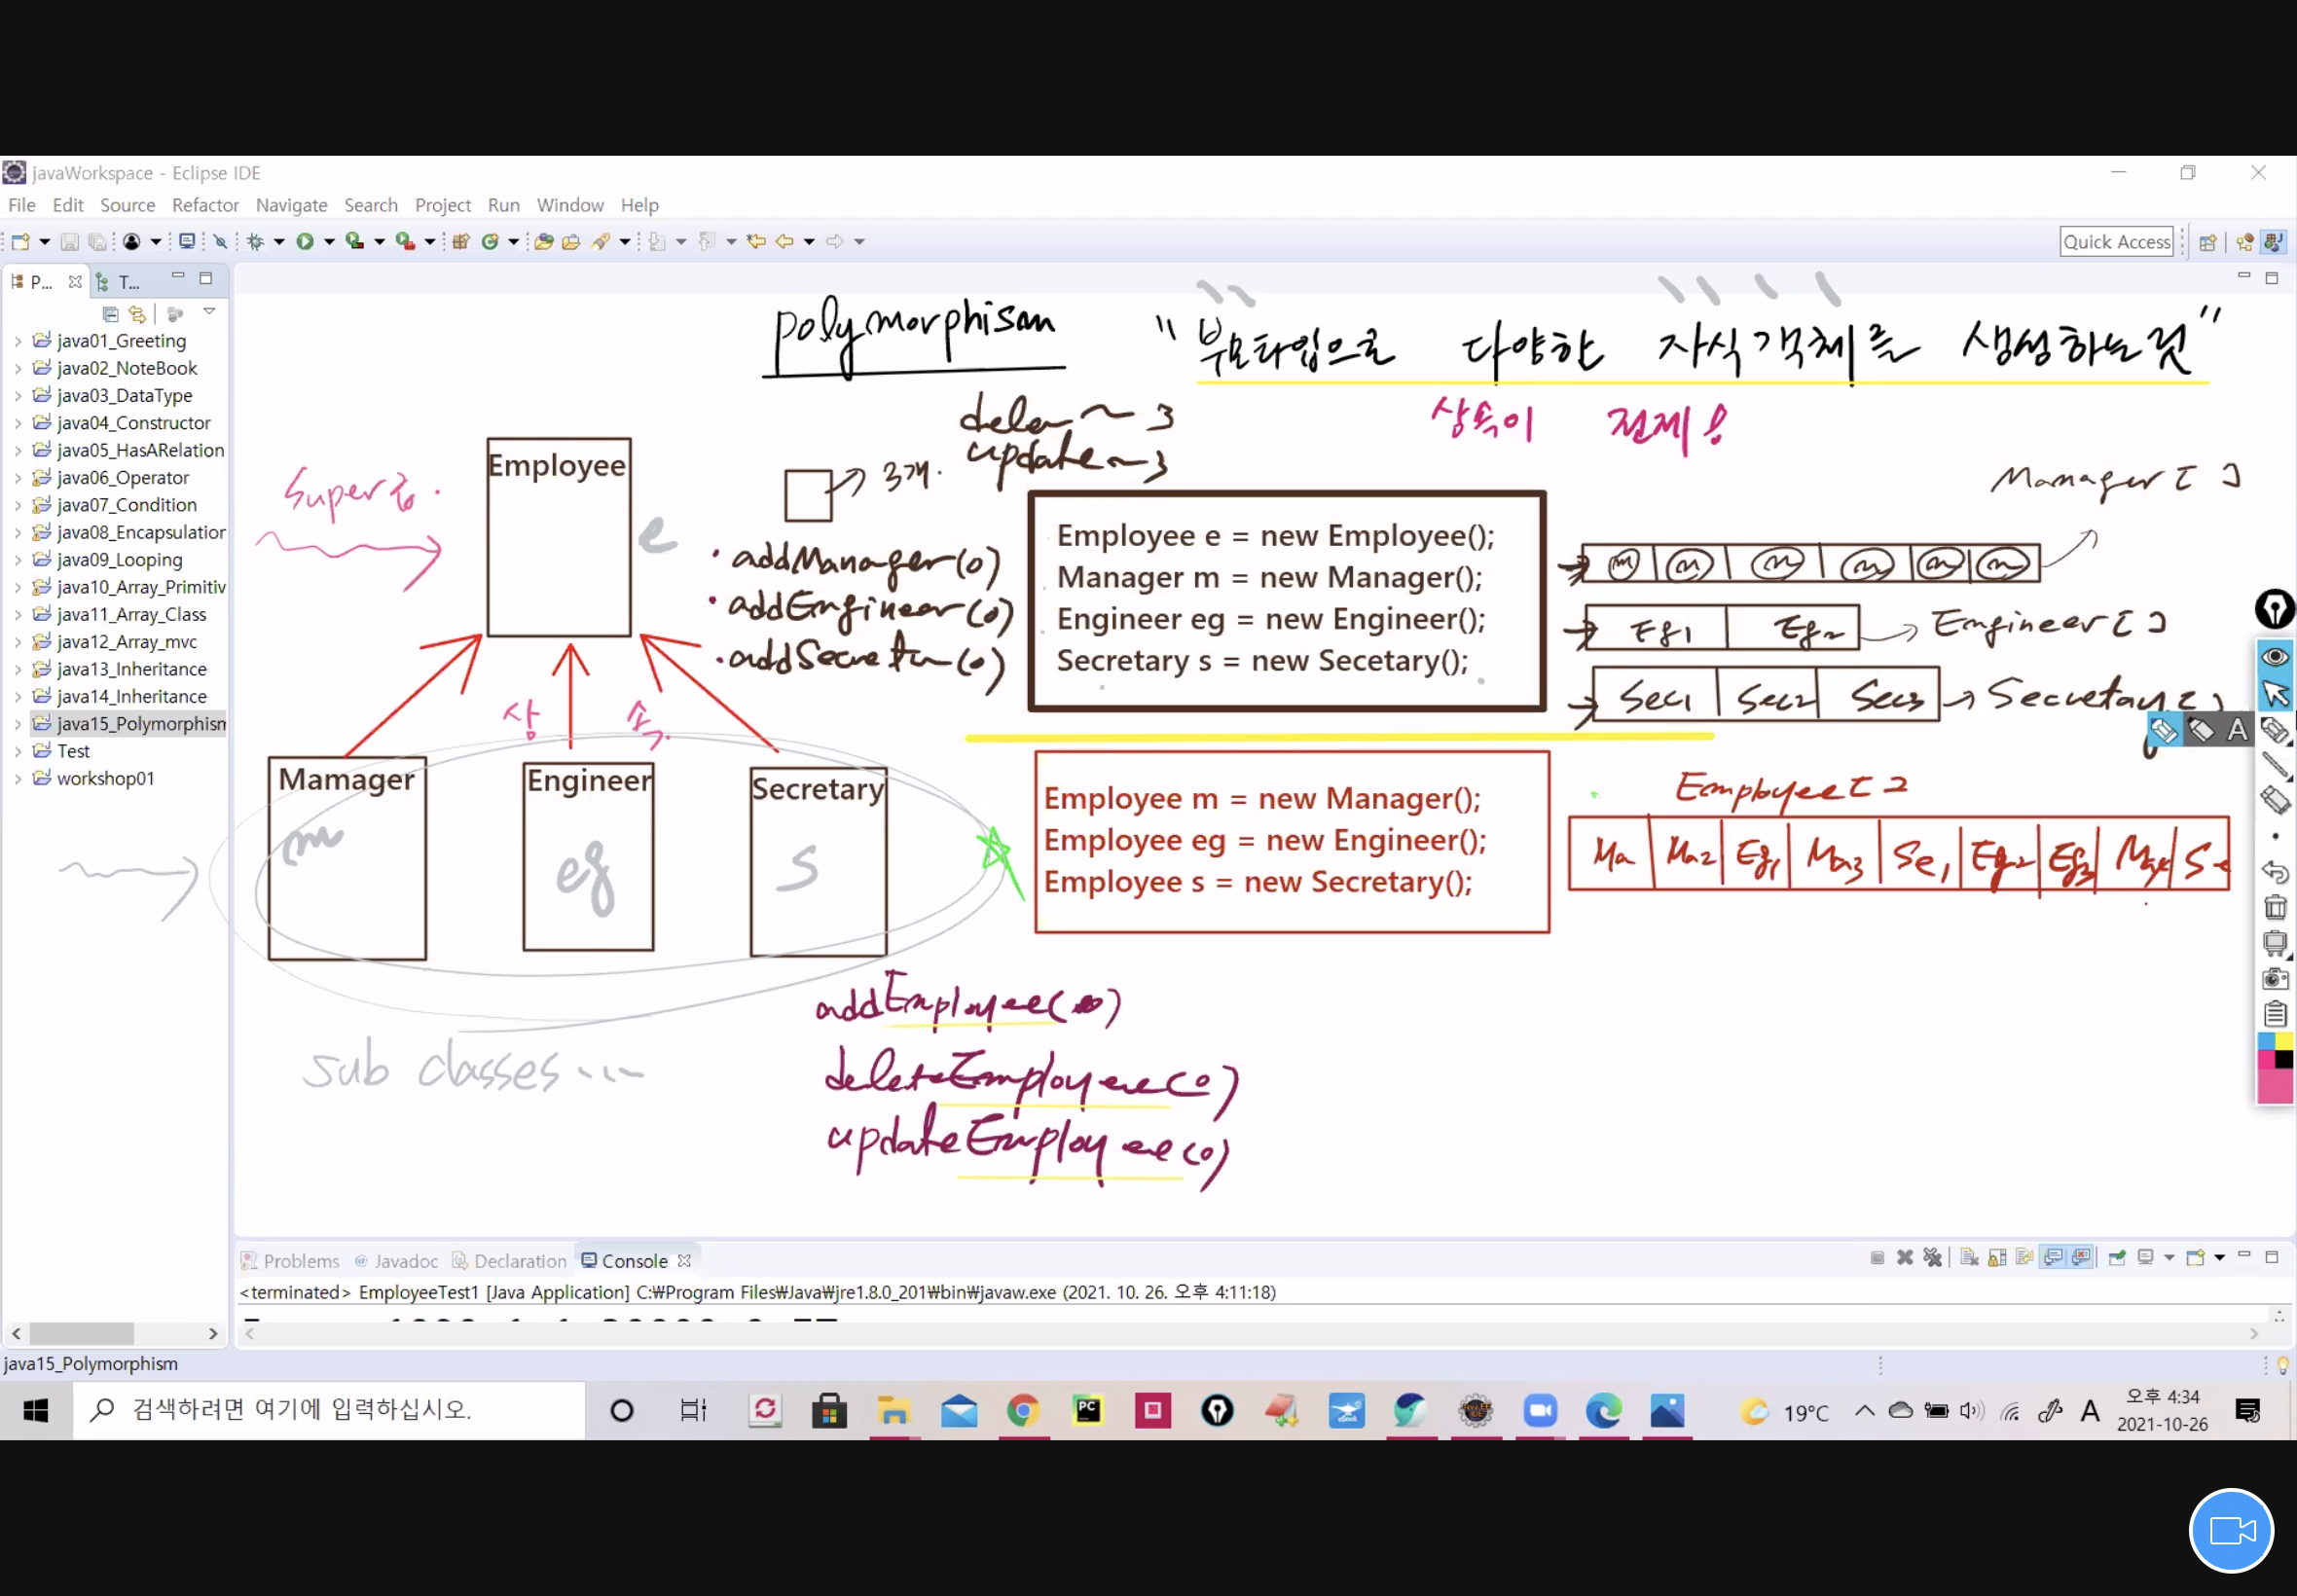 javaWorkspace - Eclipse IDE
File Edit Source Refactor Navigate Search Project Run Window Help
Quick Access
P... T...
java01_Greeting
java02_NoteBook
java03_DataType
java04_Constructor
java05_HasARelation
java06_Operator
java07_Condition
java08_Encapsulation
java09_Looping
java10_Array_Primitiv
java11_Array_Class
java12_Array_mvc
java13_Inheritance
java14_Inheritance
java15_Polymorphism
Test
workshop01
polymorphism "부모타입으로 다양한 자식객체를 생성하는것"
상속이 전제!
update~3
3개.
Super
Employee
e
· addManager(o)
· addEngineer(o)
Employee e = new Employee();
Manager m = new Manager();
Engineer eg = new Engineer();
Secretary s = new Secetary();
Manager[ ]
m m m m m m
Eg1 Eg2 Engineer[ ]
Sec1 Sec2 Sec3 Secretary[ ]
A
상 속.
Mamager
Engineer
Secretary
m
eg
s
Employee m = new Manager();
Employee eg = new Engineer();
Employee s = new Secretary();
Employee[ ]
Ma Ma2 Eg1 Ma3 Se1 Eg2 Eg3
sub classes...
addEmployee( )
deleteEmployee(o)
updateEmployee(o)
Problems Javadoc Declaration Console
<terminated> EmployeeTest1 [Java Application] C:₩Program Files₩Java₩jre1.8.0_201₩bin₩javaw.exe (2021. 10. 26. 오후 4:11:18)
java15_Polymorphism
검색하려면 여기에 입력하십시오.
PC
19°C
A
오후 4:34
2021-10-26